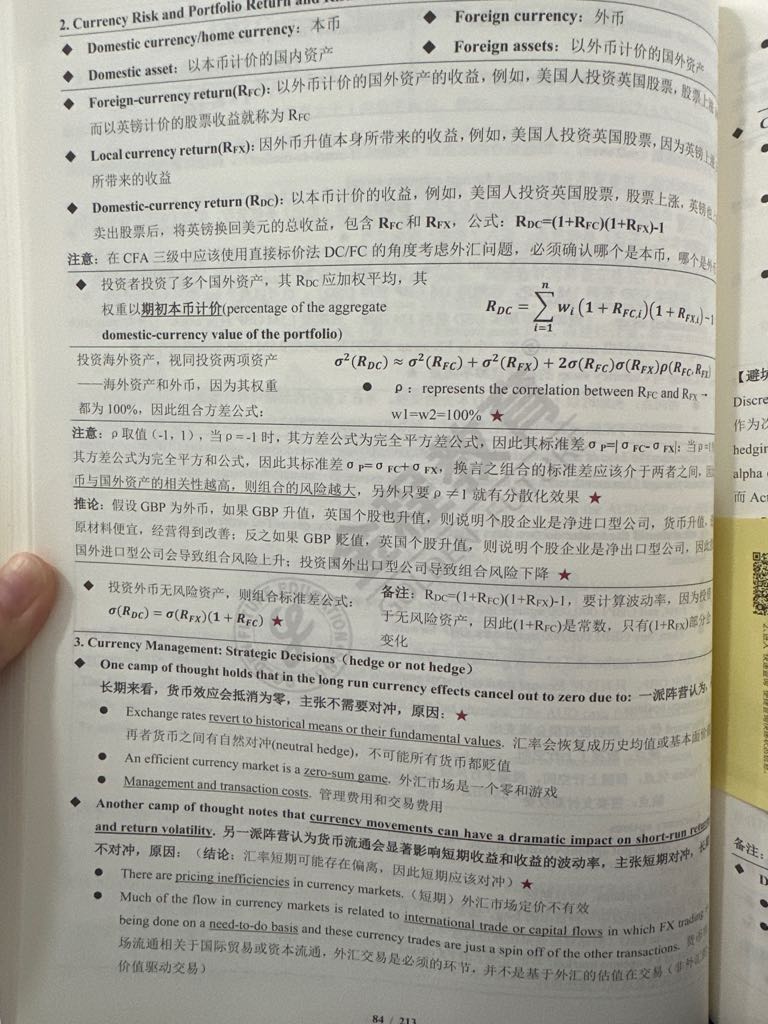 2. Currency Risk and Portfolio Return and
◆ Domestic currency/home currency：本币
◆ Foreign currency：外币
◆ Domestic asset：以本币计价的国内资产
◆ Foreign assets：以外币计价的国外资产
◆ Foreign-currency return(RFC)：以外币计价的国外资产的收益，例如，美国人投资英国股票，股票上涨
而以英镑计价的股票收益就称为 RFC
◆ Local currency return(RFX)：因外币升值本身所带来的收益，例如，美国人投资英国股票，因为英镑上涨
所带来的收益
◆ Domestic-currency return (RDC)：以本币计价的收益，例如，美国人投资英国股票，股票上涨，英镑也
卖出股票后，将英镑换回美元的总收益，包含 RFC 和 RFX，公式：RDC=(1+RFC)(1+RFX)-1
注意：在 CFA 三级中应该使用直接标价法 DC/FC 的角度考虑外汇问题，必须确认哪个是本币，哪个是外
◆ 投资者投资了多个国外资产，其 RDC 应加权平均，其
权重以期初本币计价(percentage of the aggregate
domestic-currency value of the portfolio)
RDC = ∑ⁿᵢ₌₁ wᵢ (1 + RFC,i)(1 + RFX,i) − 1
投资海外资产，视同投资两项资产
——海外资产和外币，因为其权重
都为 100%，因此组合方差公式：
σ²(RDC) ≈ σ²(RFC) + σ²(RFX) + 2σ(RFC)σ(RFX)ρ(RFC,RFX)
● ρ：represents the correlation between RFC and RFX →
w1=w2=100% ★
注意：ρ取值（-1，1），当ρ= -1 时，其方差公式为完全平方差公式，因此其标准差σP=|σFC-σFX|；当ρ=
其方差公式为完全平方和公式，因此其标准差σP=σFC+σFX，换言之组合的标准差应该介于两者之间，
币与国外资产的相关性越高，则组合的风险越大，另外只要ρ≠1 就有分散化效果 ★
推论：假设 GBP 为外币，如果 GBP 升值，英国个股也升值，则说明个股企业是净进口型公司，货币升值，
原材料便宜，经营得到改善；反之如果 GBP 贬值，英国个股升值，则说明个股企业是净出口型公司，因此
国外进口型公司会导致组合风险上升；投资国外出口型公司导致组合风险下降 ★
◆ 投资外币无风险资产，则组合标准差公式：
σ(RDC) = σ(RFX)(1 + RFC) ★
备注：RDC=(1+RFC)(1+RFX)-1，要计算波动率，因为投资
于无风险资产，因此(1+RFC)是常数，只有(1+RFX)部分会
变化
3. Currency Management: Strategic Decisions（hedge or not hedge）
◆ One camp of thought holds that in the long run currency effects cancel out to zero due to: 一派阵营认为，
长期来看，货币效应会抵消为零，主张不需要对冲，原因：★
● Exchange rates revert to historical means or their fundamental values. 汇率会恢复成历史均值或基本面价值
再者货币之间有自然对冲(neutral hedge)，不可能所有货币都贬值
● An efficient currency market is a zero-sum game. 外汇市场是一个零和游戏
● Management and transaction costs. 管理费用和交易费用
◆ Another camp of thought notes that currency movements can have a dramatic impact on short-run returns
and return volatility. 另一派阵营认为货币流通会显著影响短期收益和收益的波动率，主张短期对冲，长
不对冲，原因：（结论：汇率短期可能存在偏离，因此短期应该对冲）★
● There are pricing inefficiencies in currency markets.（短期）外汇市场定价不有效
● Much of the flow in currency markets is related to international trade or capital flows in which FX trading
being done on a need-to-do basis and these currency trades are just a spin off of the other transactions.
场流通相关于国际贸易或资本流通，外汇交易是必须的环节，并不是基于外汇的估值在交易（非
价值驱动交易）
84 / 213
【避
Discre
作为次
hedgin
alpha
而 Act
备注：